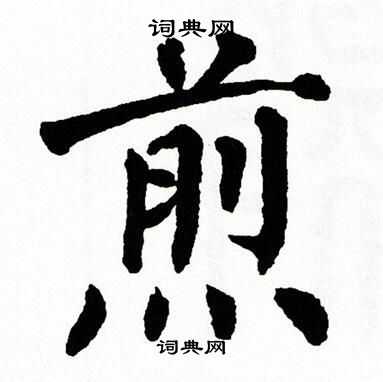 词典网
煎
词典网